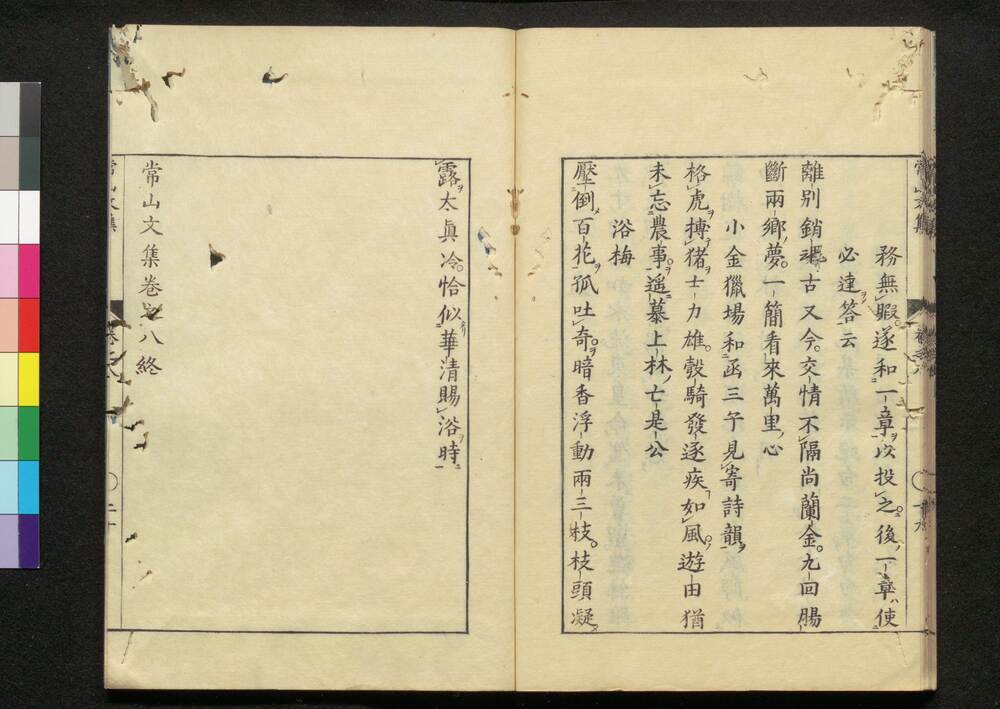 務無暇遂和一章以投之後一章使
必達答云
離別銷魂古又今交情不隔尚蘭金九回腸
斷兩鄉夢一簡看來萬里心
小金獵場和函三午見寄詩韻
格虎摶猪士力雄彀騎發逐疾如風遊由猶
未忘農事遥慕上林亡是公
浴梅
壓倒百花孤吐奇暗香浮動兩三枝枝頭凝
露太眞冷恰似華清賜浴時
常山文集卷之八終